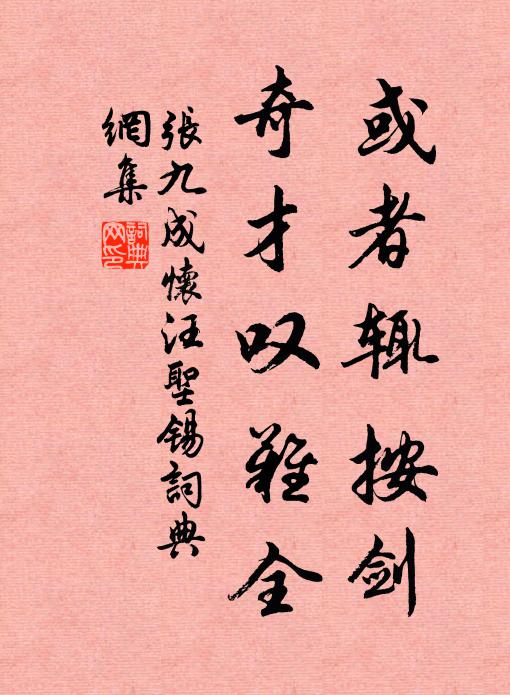 或者辄按剑
奇才叹难全
張九成懷汪聖錫詞典
網集
詞典
网印